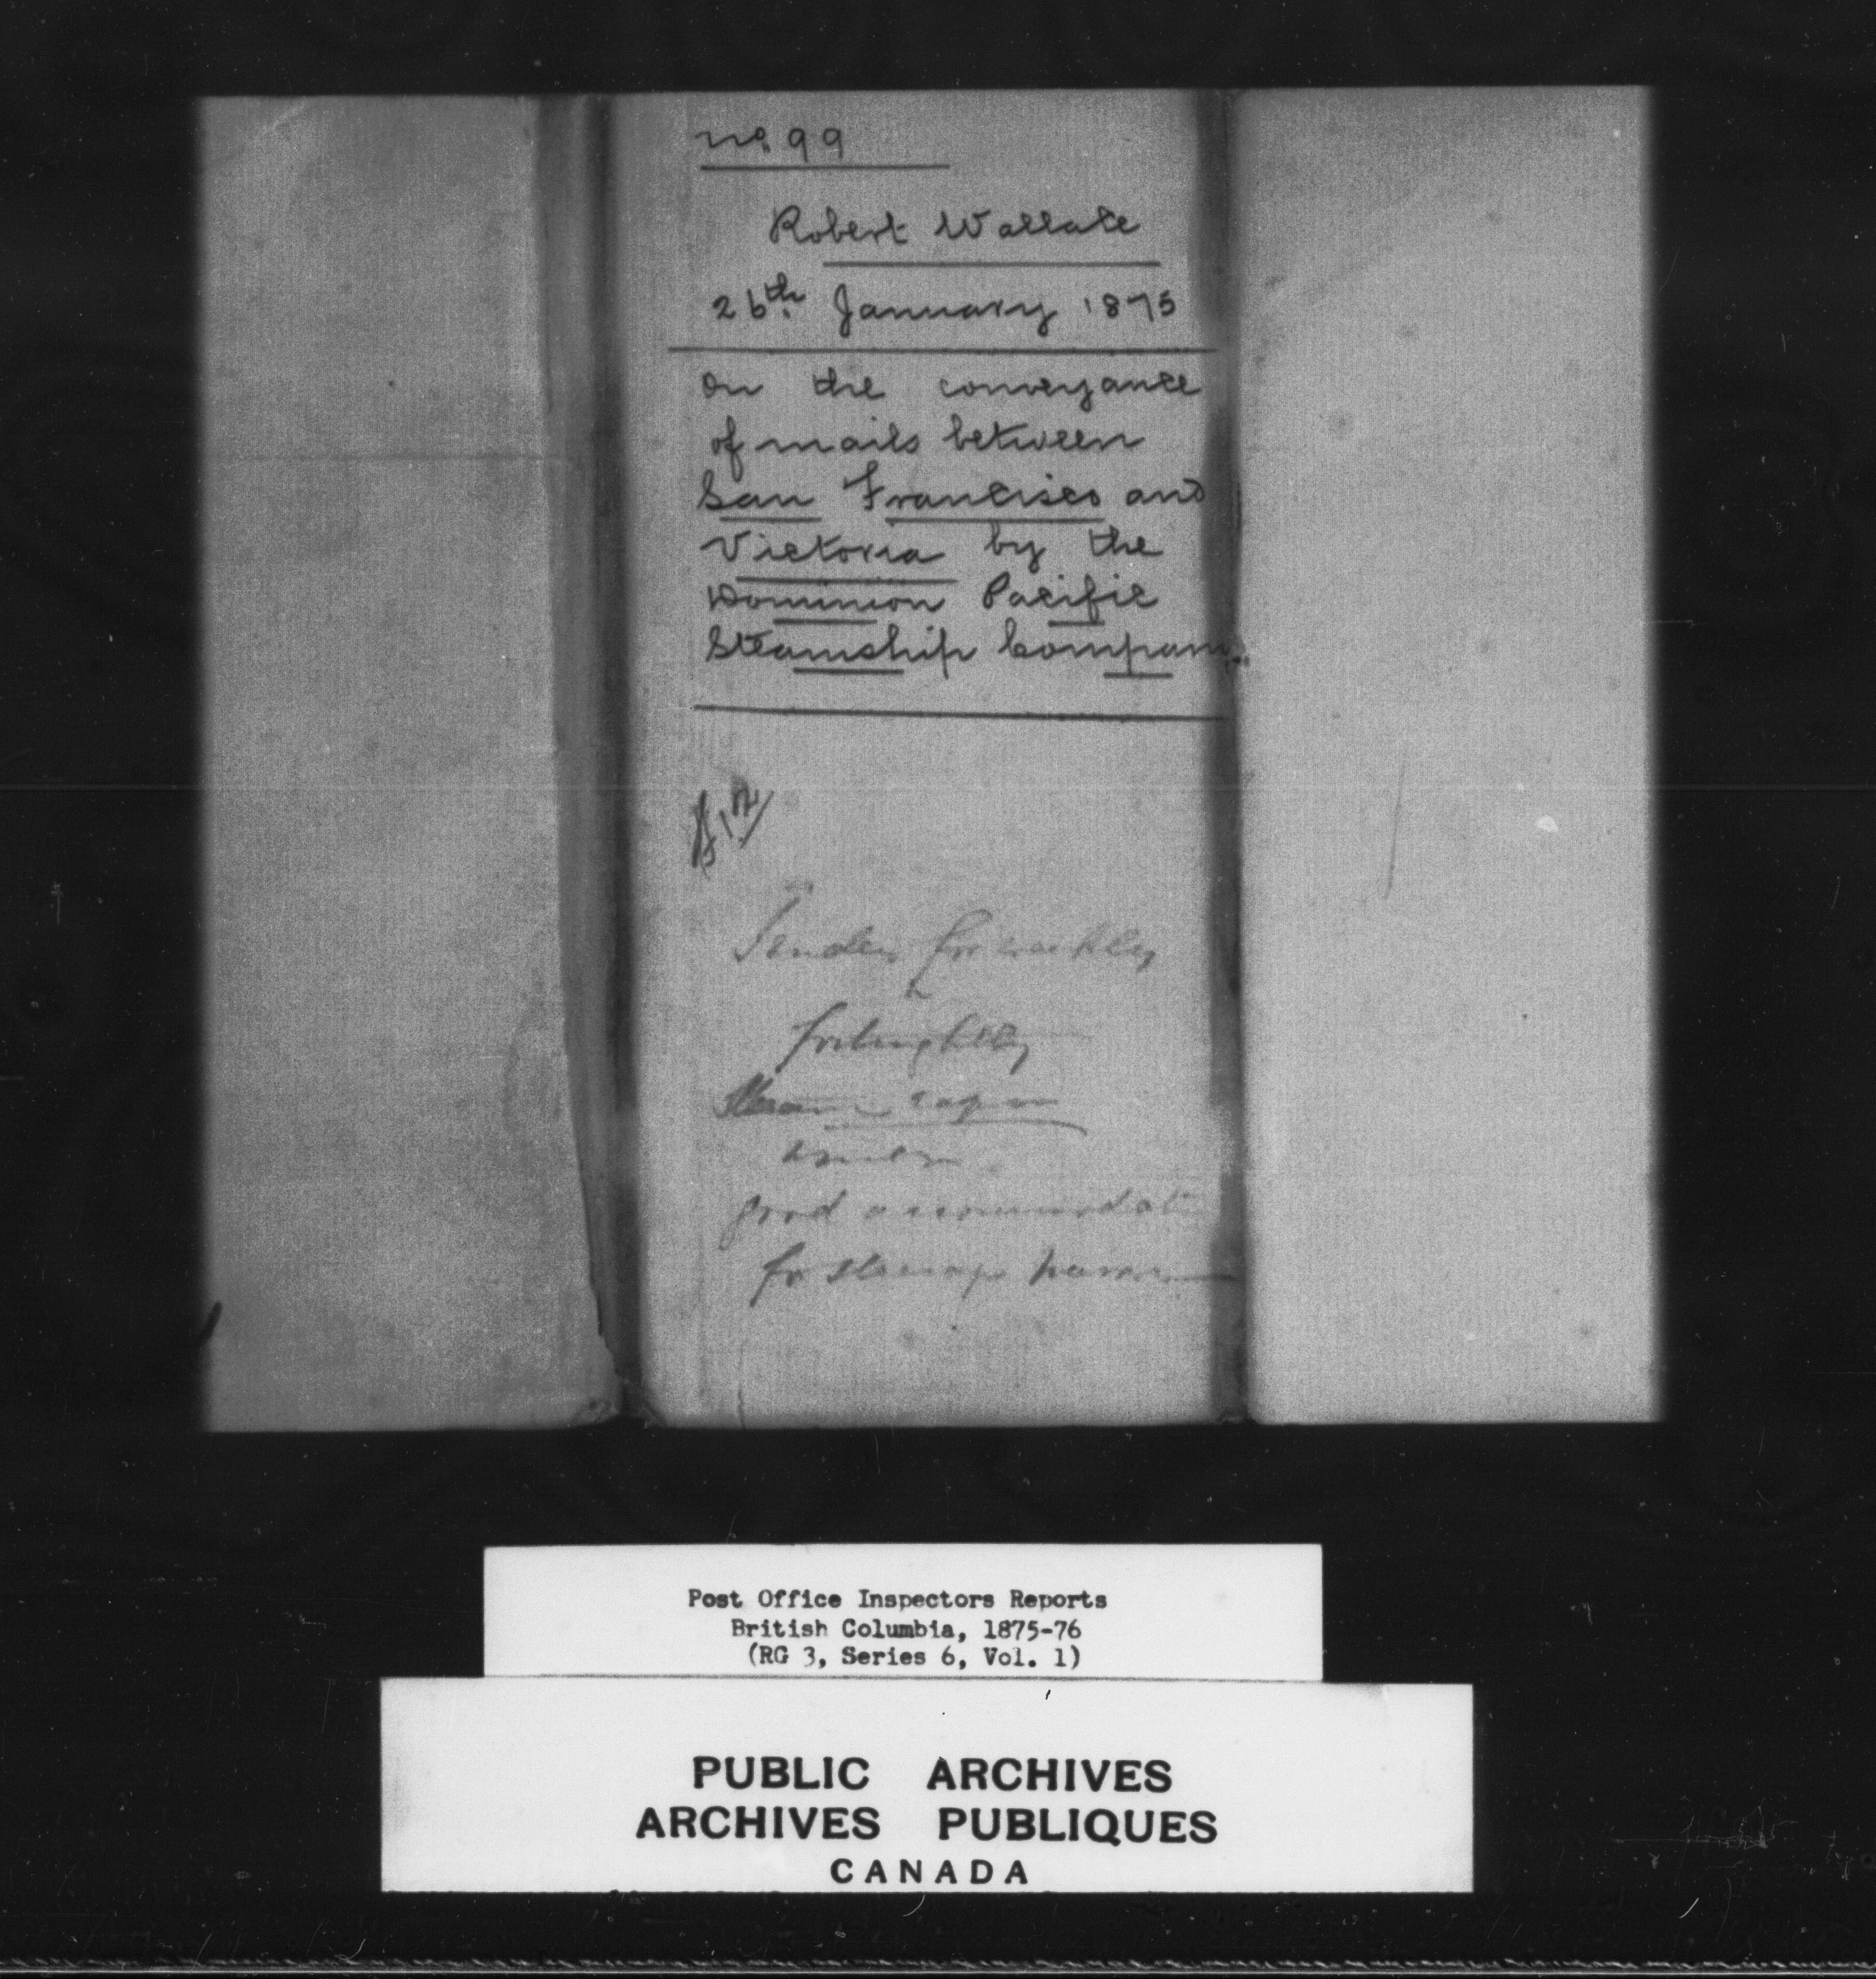 No. 99
Robert Wallace
26th January 1875
On the conveyance
of mails between
San Francisco and
Victoria by the
Dominion Pacific
Steamship Company.
Tender for weekly
fortnightly
good accommodat
for steerage
Post Office Inspectors Reports
British Columbia, 1875-76
(RG 3, Series 6, Vol. 1)
PUBLIC ARCHIVES
ARCHIVES PUBLIQUES
CANADA